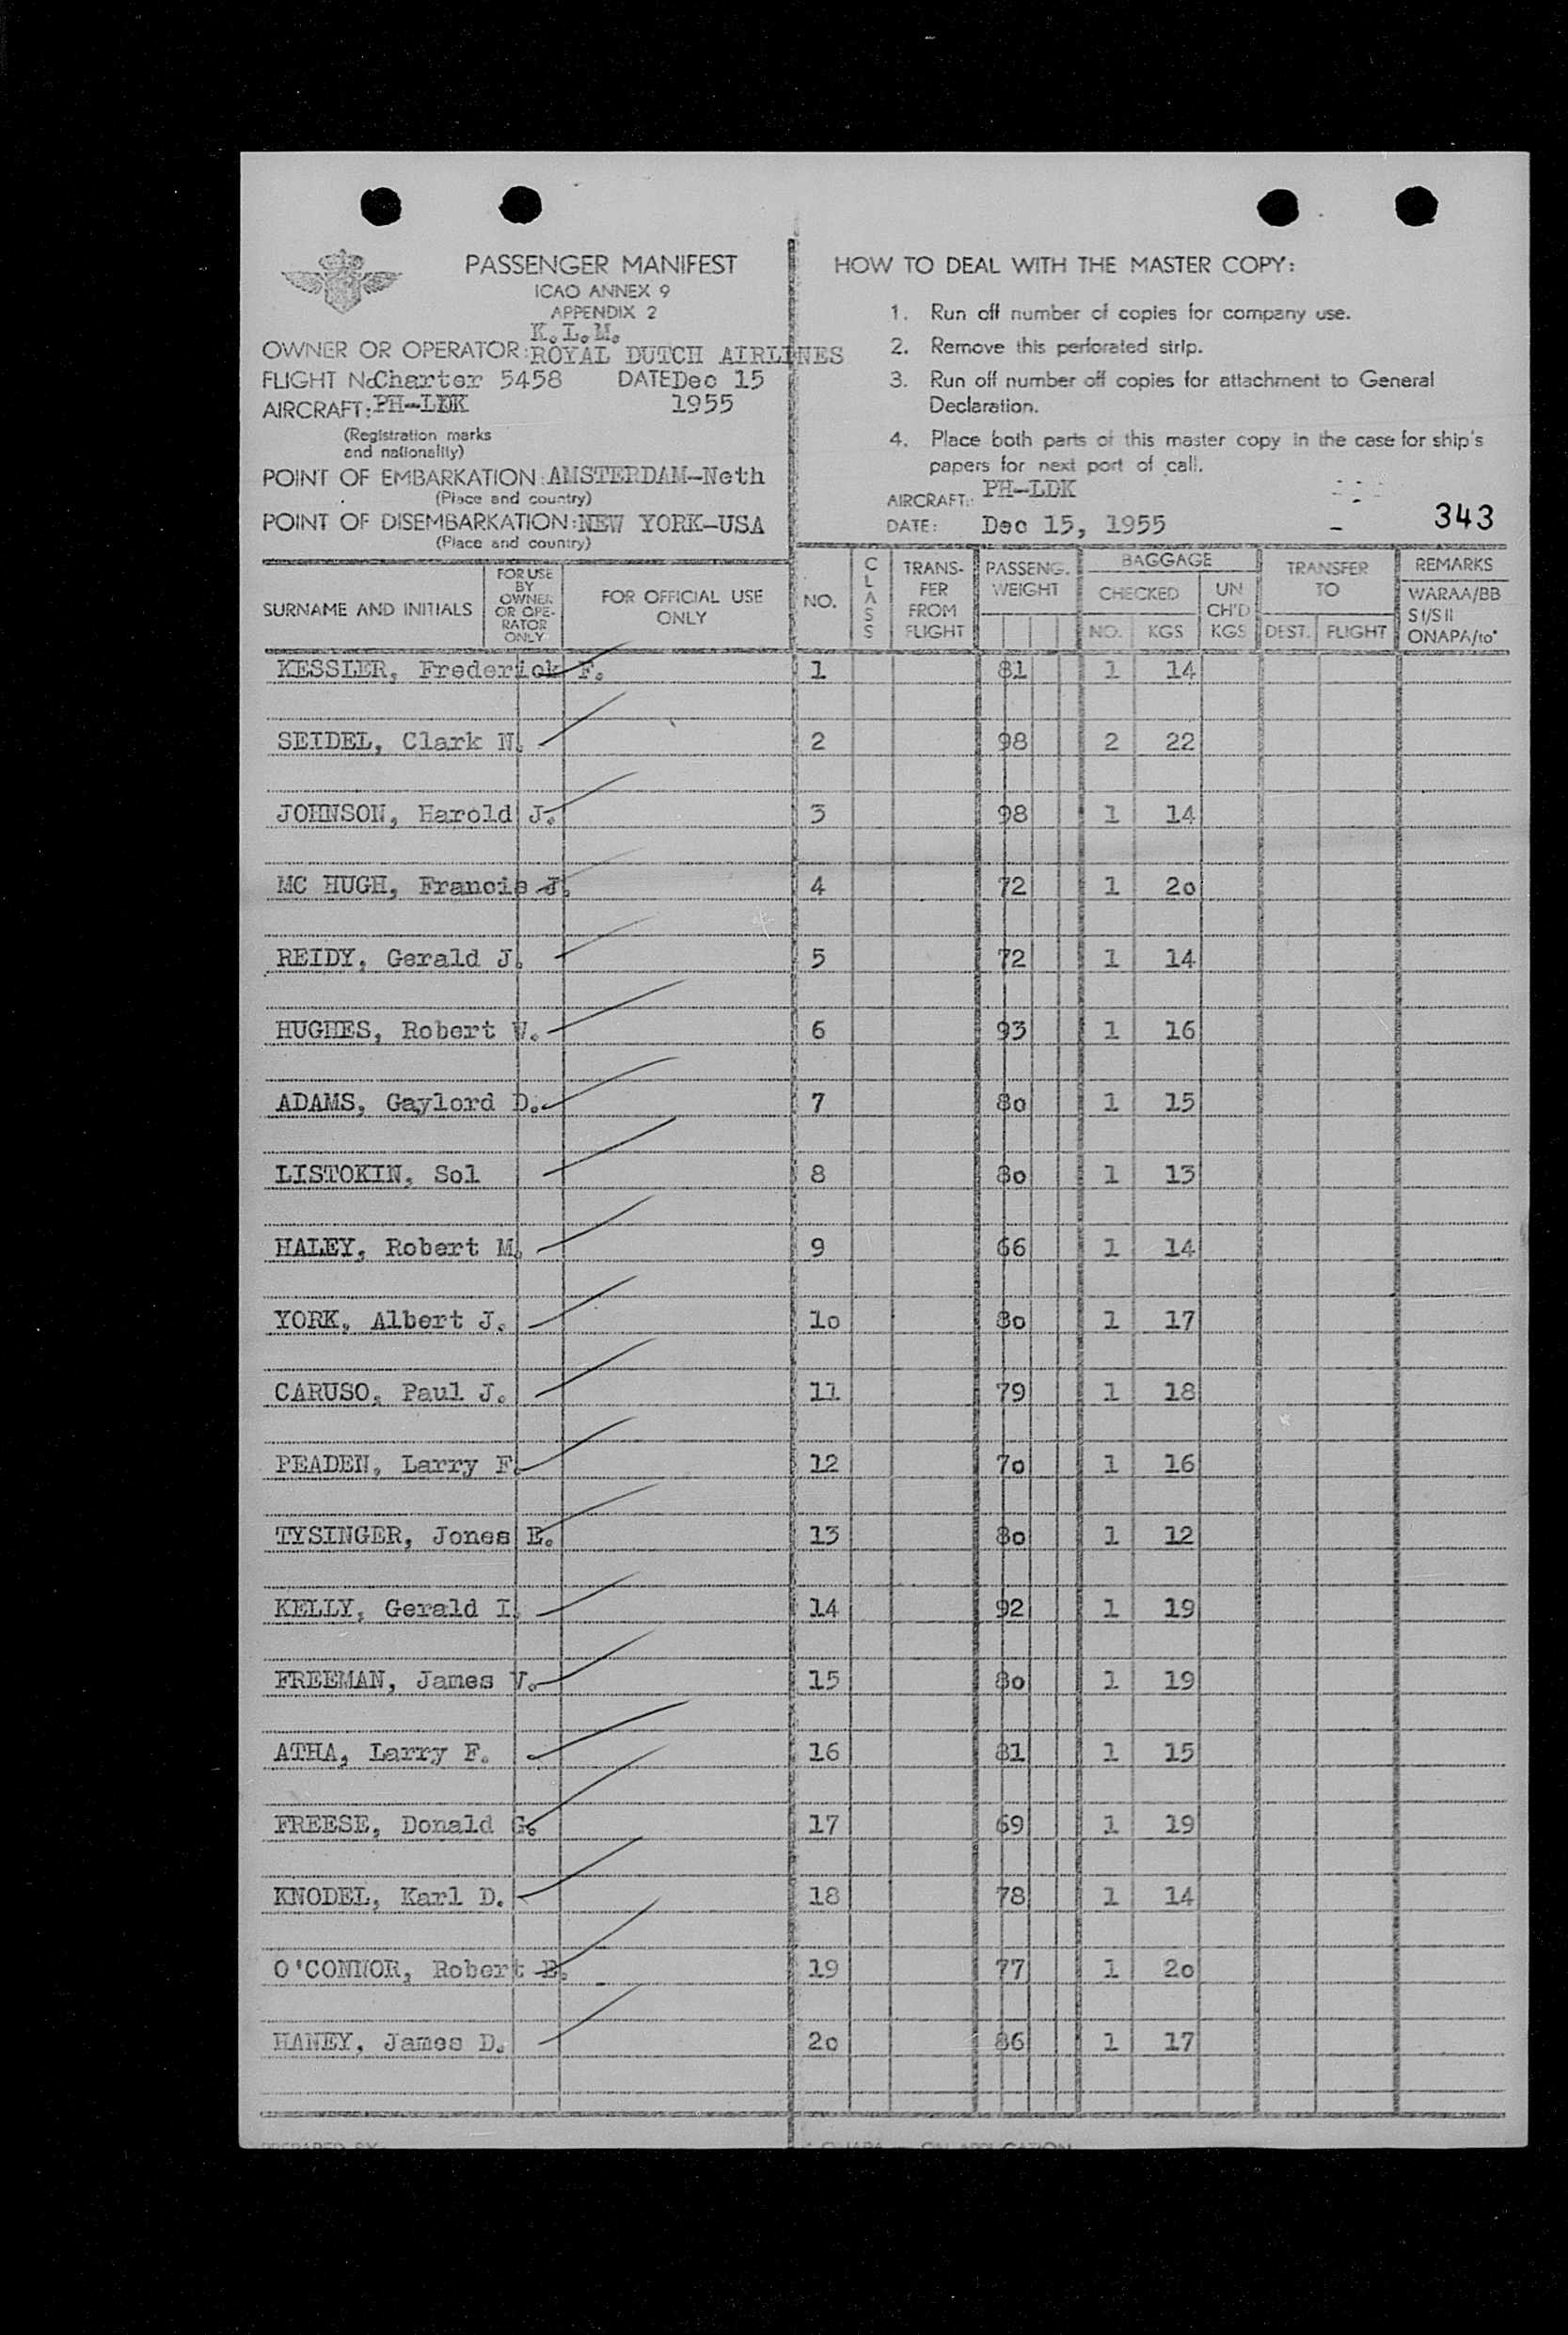 PASSENGER MANIFEST
ICAO ANNEX 9
APPENDIX 2
K.L.M.
OWNER OR OPERATOR: ROYAL DUTCH AIRLINES
FLIGHT No Charter 5458 DATE Dec 15
AIRCRAFT: PH-LDK 1955
(Registration marks
and nationality)
POINT OF EMBARKATION: AMSTERDAM-Neth
(Place and country)
POINT OF DISEMBARKATION: NEW YORK-USA
(Place and country)
HOW TO DEAL WITH THE MASTER COPY:
1. Run off number of copies for company use.
2. Remove this perforated strip.
3. Run off number off copies for attachment to General
Declaration.
4. Place both parts of this master copy in the case for ship's
papers for next port of call.
AIRCRAFT: PH-LDK
DATE: Dec 15, 1955
343
SURNAME AND INITIALS
FOR USE
BY
OWNER
OR OPE-
RATOR
ONLY
FOR OFFICIAL USE
ONLY
NO.
CLASS
TRANS-
FER
FROM
FLIGHT
PASSENG.
WEIGHT
BAGGAGE
CHECKED
NO. KGS
UN
CH'D
KGS
TRANSFER
TO
DEST. FLIGHT
REMARKS
WARAA/BB
SI/SII
ONAPA/to*
KESSLER, Frederick F. 1 81 1 14
SEIDEL, Clark N. 2 98 2 22
JOHNSON, Harold J. 3 98 1 14
MC HUGH, Francis J. 4 72 1 2o
REIDY, Gerald J. 5 72 1 14
HUGHES, Robert W. 6 93 1 16
ADAMS, Gaylord D. 7 8o 1 15
LISTOKIN, Sol 8 8o 1 13
HALEY, Robert M. 9 66 1 14
YORK, Albert J. 1o 8o 1 17
CARUSO, Paul J. 11 79 1 18
PEADEN, Larry F. 12 7o 1 16
TYSINGER, Jones E. 13 8o 1 12
KELLY, Gerald I. 14 92 1 19
FREEMAN, James V. 15 8o 1 19
ATHA, Larry F. 16 81 1 15
FREESE, Donald G. 17 69 1 19
KNODEL, Karl D. 18 78 1 14
O'CONNOR, Robert E. 19 77 1 2o
HANEY, James D. 2o 86 1 17
PREPARED BY